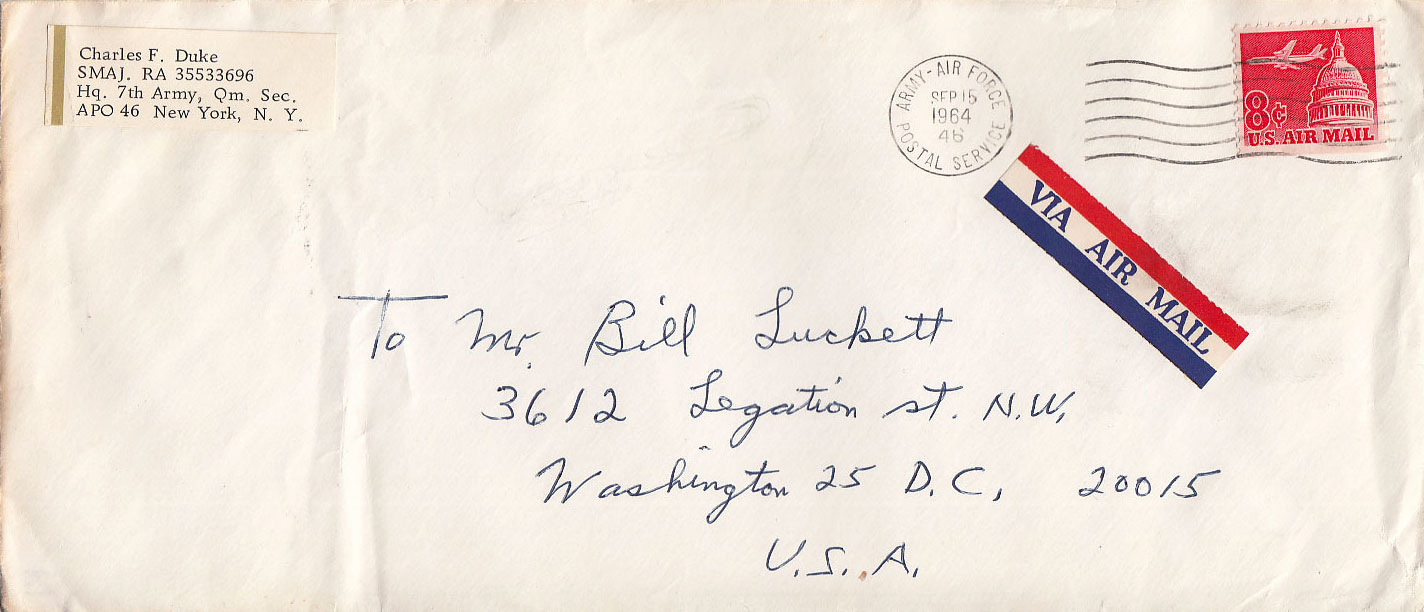 Charles F. Duke
SMAJ. RA 35533696
Hq. 7th Army, Qm. Sec.
APO 46 New York, N. Y.
ARMY-AIR FORCE
SEP 15
1964
46
POSTAL SERVICE
8¢
U.S. AIR MAIL
VIA AIR MAIL
To Mr. Bill Luckett
3612 Legation st. N.W.
Washington 25 D.C. 20015
U.S.A.